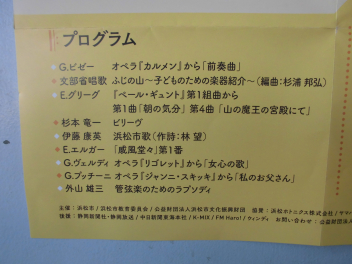 プログラム
G.ビゼー オペラ『カルメン』から「前奏曲」
文部省唱歌 ふじの山〜子どものための楽器紹介〜(編曲:杉浦 邦弘)
E.グリーグ 『ペール・ギュント』第1組曲から
第1曲「朝の気分」 第4曲 「山の魔王の宮殿にて」
杉本 竜一 ビリーヴ
伊藤 康英 浜松市歌(作詩:林 望)
E.エルガー 「威風堂々」第1番
G.ヴェルディ オペラ『リゴレット』から「女心の歌」
G.プッチーニ オペラ『ジャンニ・スキッキ』から「私のお父さん」
外山 雄三 管弦楽のためのラプソディ
主催:浜松市/浜松市教育委員会/公益財団法人浜松市文化振興財団 協賛:浜松ホトニクス株式会社/ヤマハ
後援:静岡新聞社・静岡放送/中日新聞東海本社/K-MIX/FM Haro!/ウィンディ お問い合わせ:公益財団法人